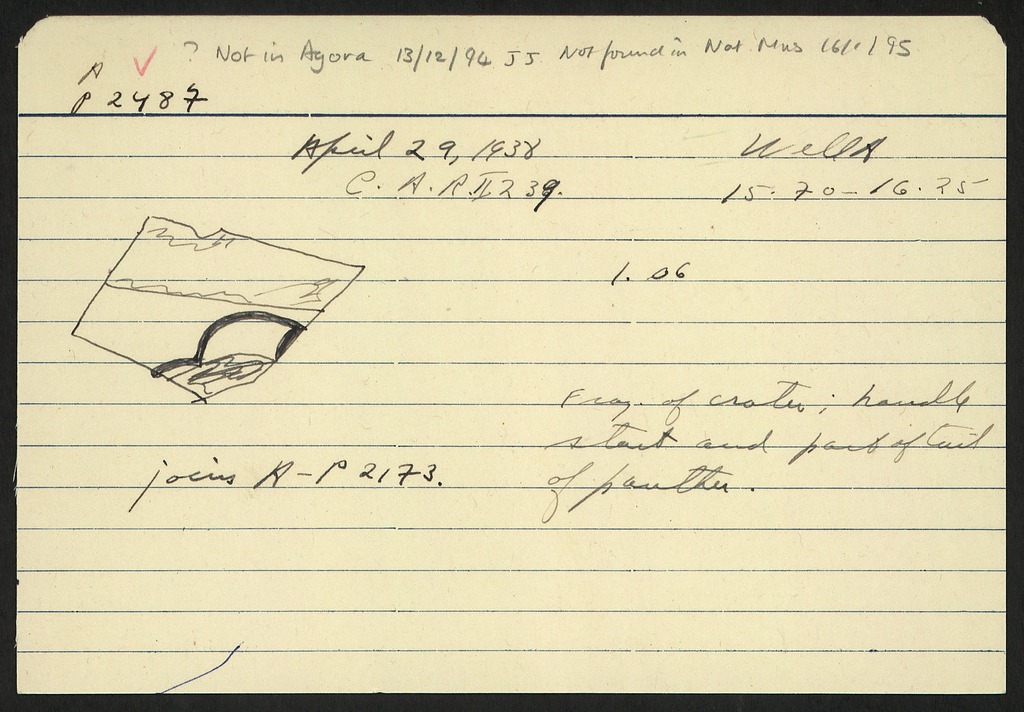 ? Not in Agora 13/12/94 JJ Not found in Nat. Mus 16/1/95
A
P 2487
April 29, 1938 Well A
C. A. R. II 239. 15.70-16.25
1.06
Frag. of crater; handle
start and part of tail
of panther.
joins A-P 2173.